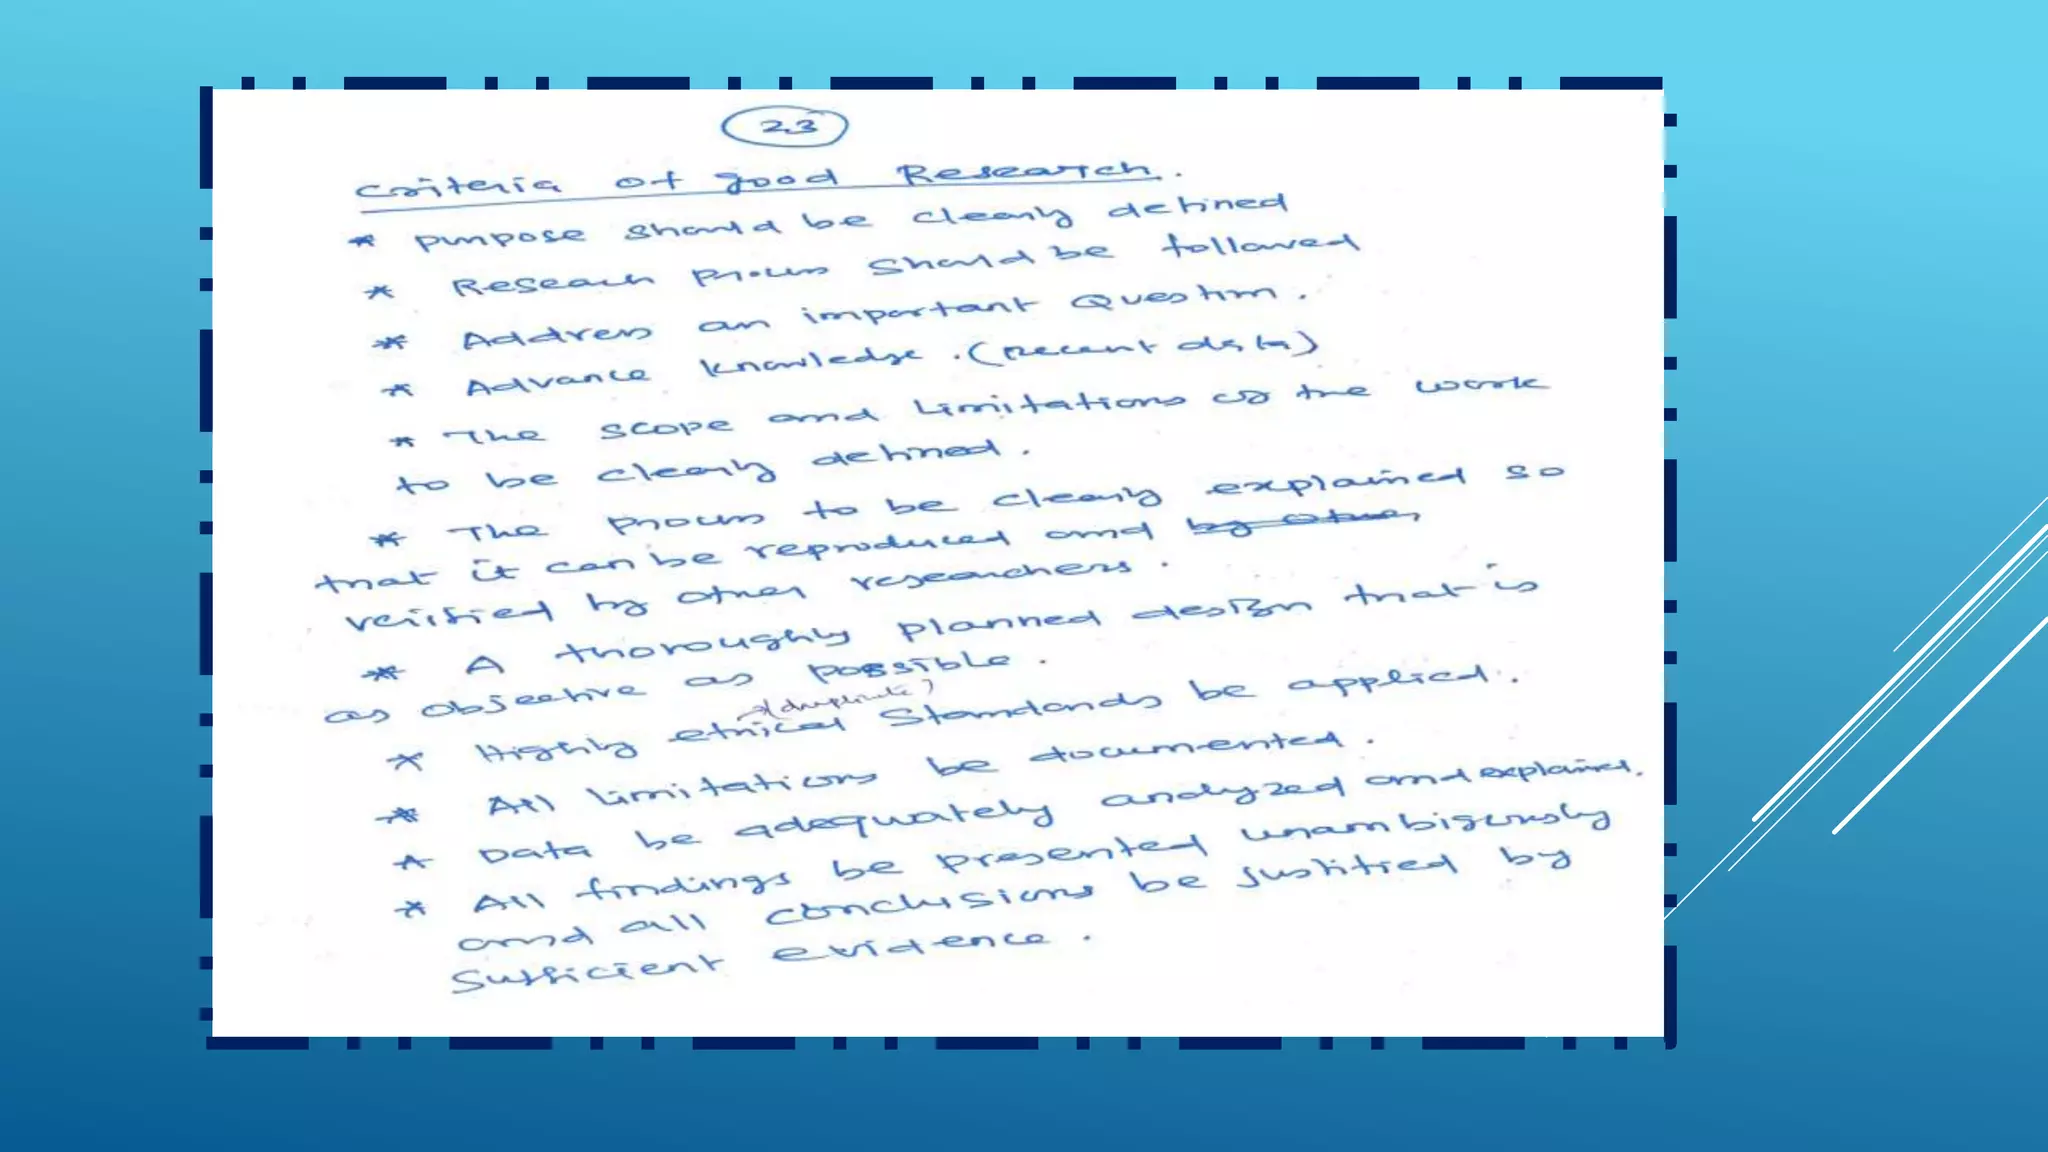 23
Criteria of good Research.
* purpose should be clearly defined
* Reseach process should be followed
* Address an important Question.
* Advance knowledge. (recent data)
* The scope and limitations of the work
to be clearly defined.
* The process to be clearly explained so
that it can be reproduced and by other
verified by other researchers.
* A thoroughly planned design that is
as objective as possible.
(duplicate)
* Highly ethical Standards be applied.
* All limitations be documented.
* Data be adequately analyzed and explained.
* All findings be presented unambiguously
and all conclusions be justified by
sufficient evidence.